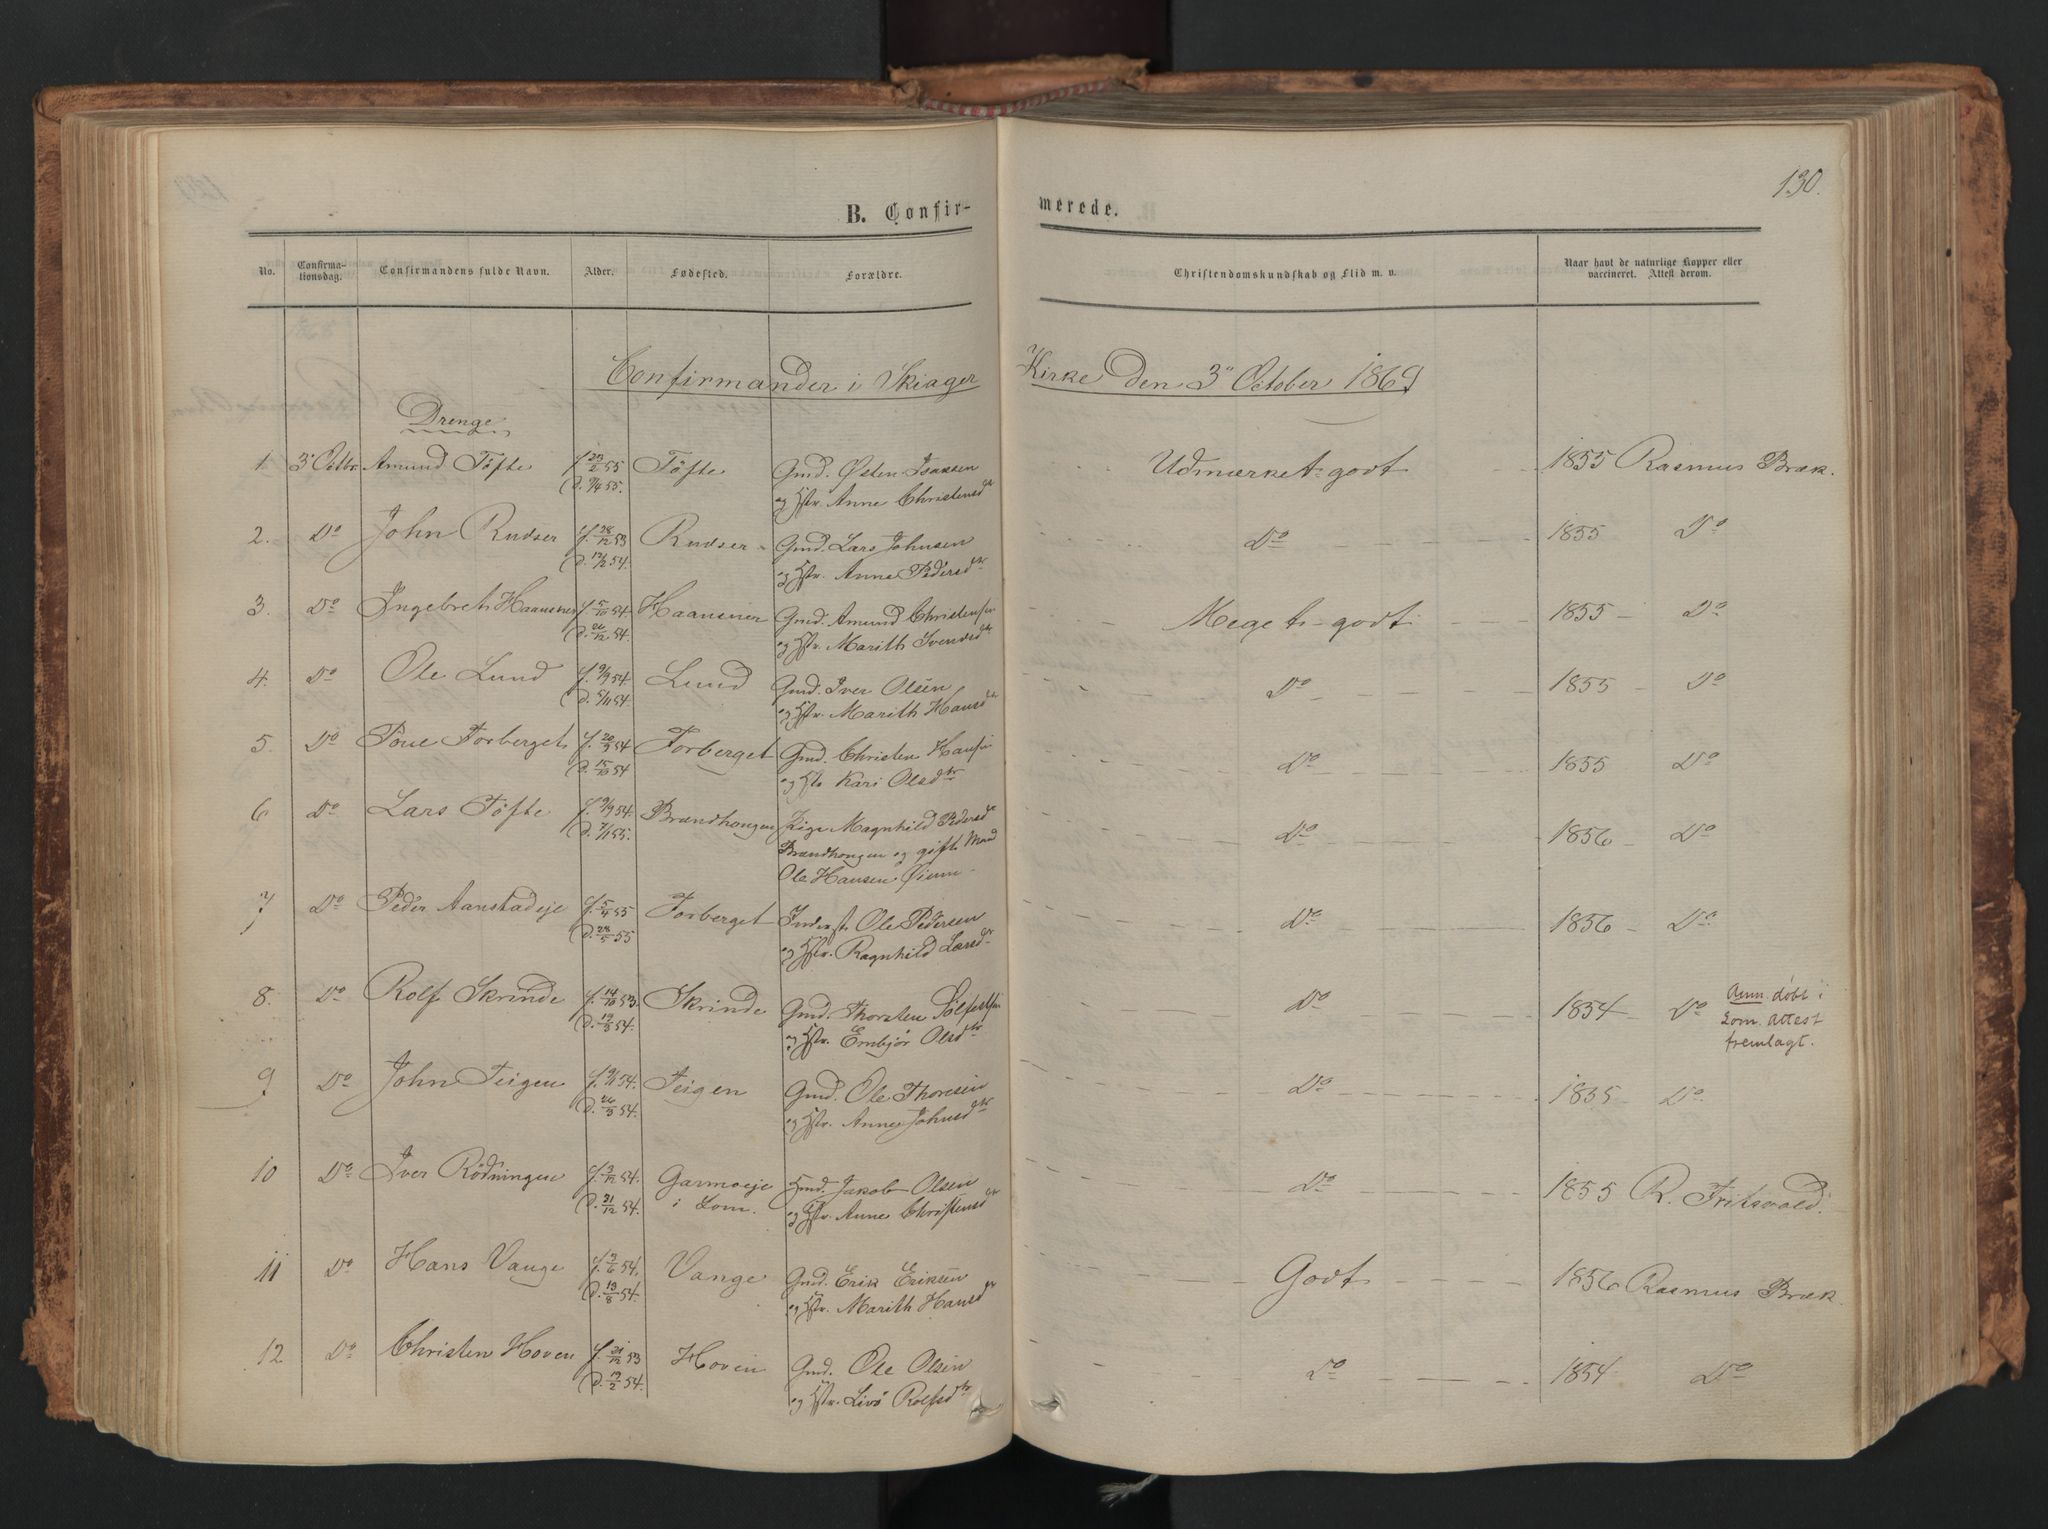 130.
B. Confirmerede.
No. Confirmationsdag. Confirmandens fulde Navn. Alder. Fødested. Forældre. Christendomskundskab og Flid m. v. Naar havt de naturlige Kopper eller vaccineret. Attest derom.
Confirmander i Skiager Kirke den 3' October 1869
Drenge
1. 3' Octbr. Amund Töfte f. 23/2 55 Töfte Gmd. Østen Isaksen Udmærket-godt 1855 Rasmus Bræk.
d. 9/4 55. og Hstr. Anne Christensdr
2. Do John Rudser f. 28/12 53 Rudser Gmd. Lars Johnsen Do 1855 Do
d. 12/2 54. og Hstr. Anne Pedersdr
3. Do Ingebret Haansner f. 5/10 54. Haansner Gmd. Amund Christensen Meget-godt 1855 Do
d. 26/12 54. og Hstr. Marith Iversdr
4. Do Ole Lund f. 9/9 54 Lund Gmd. Iver Olsen Do 1855 Do
d. 5/11 54 og Hstr. Marith Hansdr
5. Do Torberget f. 20/9 54 Torberget Gmd. Christen Hansen Do 1855 Do
d. 15/10 54 og Kari Olsdtr
6 Do Lars Töfte f. 9/9 54. Brændhougen Pige Magnhild Pedersdr Do 1856 Do
d. 7/1 55. Brændhougen og gift Mand
Ole Hansen Øiem
7 Do Peder Aanstadeje f. 5/4 55 Torberget Inderst Ole Pedersen Do 1856 Do
d. 28/5 55 og Hstr. Ragnhild Larsdr
8. Do Rolf Skrinde f. 14/10 53. Skrinde Gmd. Thorsten Do 1854 Do Anm. döbt i
d. 19/3 54. og Hstr. Embjör Olsdtr Lom. Attest
fremlagt.
9 Do John Teigen f. 9/11 54. Teigen Gmd. Ole Thoresen Do 1855 Do
d. 26/3 54. og Hstr. Anne Johnsdtr
10 Do Iver Rödningen f. 3/12 54. Garmoeje Hmd. Jakob Olsen Do 1855 R. Fritsvold.
d. 31/12 54. i Lom. og Hstr. Anne Christensdr
11 Do Hans Vange f. 3/6 54. Vange Gmd. Erik Eriksen Godt 1856 Rasmus Bræk.
d. 13/8 54. og Hstr. Marith Hansdr
12 Do Christen Hoven f. 21/12 53 Hoven Gmd. Ole Olsen Do 1854 Do
d. 19/2 54. og Hstr. Livö Rolfsdtr